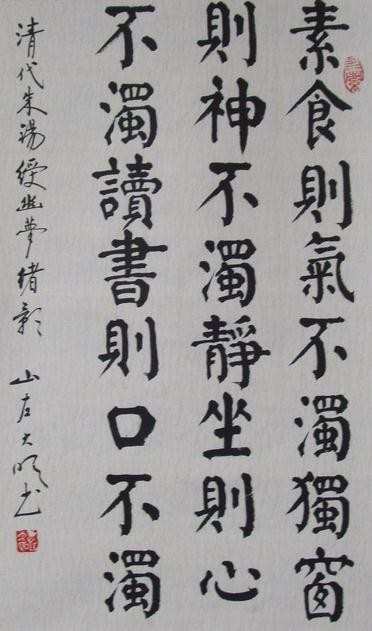 素食則氣不濁獨窗
則神不濁靜坐則心
不濁讀書則口不濁
清代朱湯綬幽夢緒影 山左大书